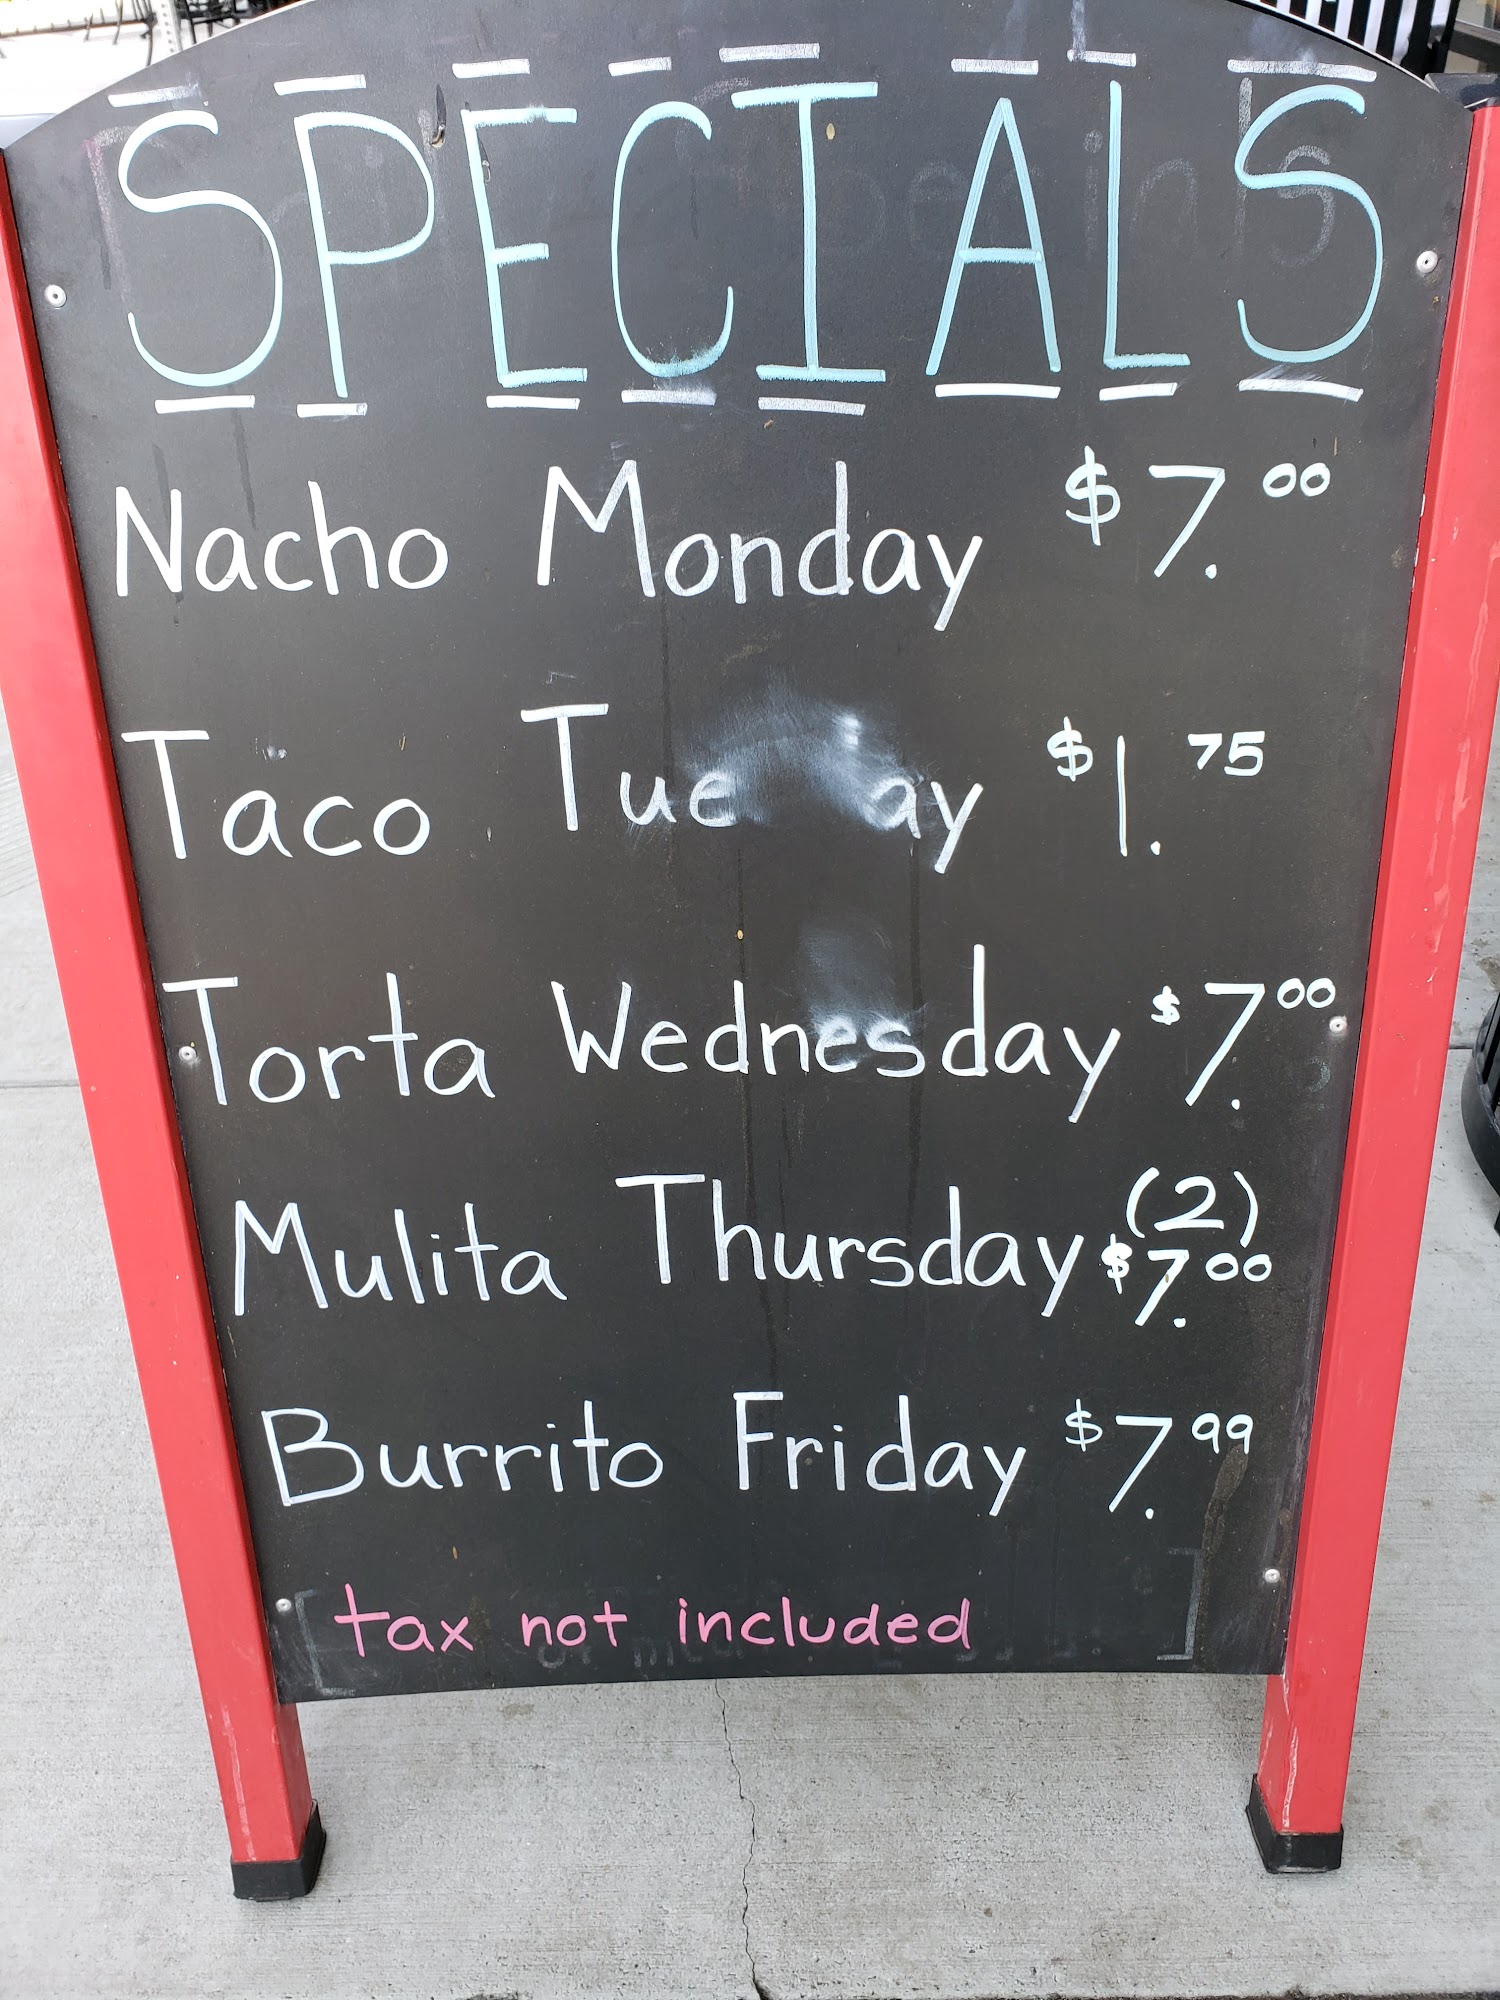 SPECIALS
Nacho Monday $7.00
Taco $1.75
Torta Wednesday $7.00
Mulita Thursday (2) $7.00
Burrito Friday $7.99
tax not included